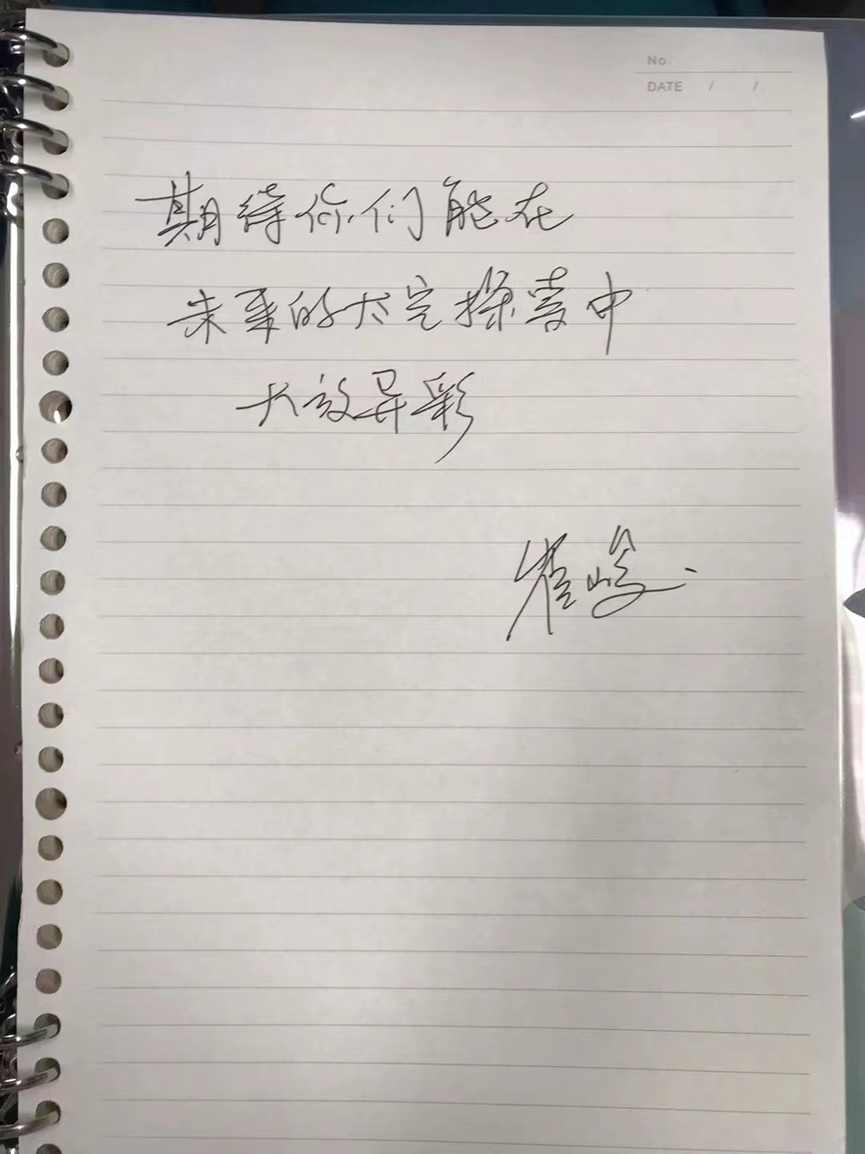 No.
DATE / /
期待你们能在
未来的太空探索中
大放异彩
崔峻